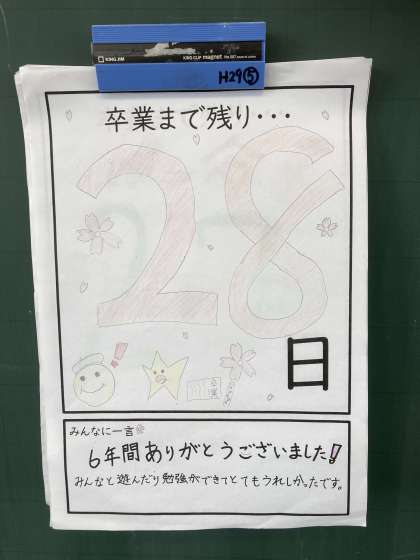 KING JIM
KING CLIP magnet
H29⑤
卒業まで残り・・・
28
日
卒業
みんなに一言
6年間ありがとうございました!
みんなと遊んだり勉強ができてとてもうれしかったです。